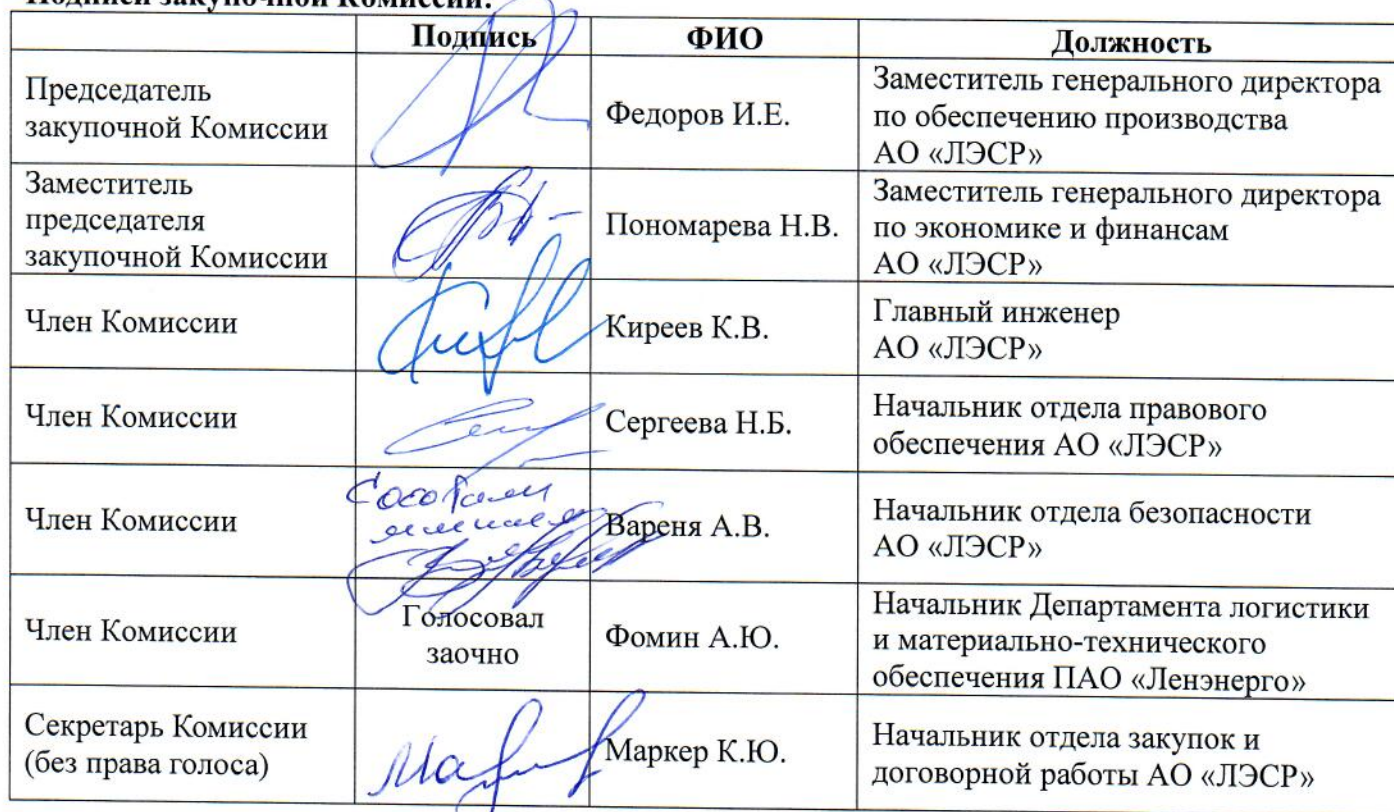 Подписи закупочной Комиссии:
Подпись ФИО Должность
Председатель
закупочной Комиссии
Федоров И.Е.
Заместитель генерального директора
по обеспечению производства
АО «ЛЭСР»
Заместитель
председателя
закупочной Комиссии
Пономарева Н.В.
Заместитель генерального директора
по экономике и финансам
АО «ЛЭСР»
Член Комиссии
Киреев К.В.
Главный инженер
АО «ЛЭСР»
Член Комиссии
Сергеева Н.Б.
Начальник отдела правового
обеспечения АО «ЛЭСР»
Член Комиссии
Вареня А.В.
Начальник отдела безопасности
АО «ЛЭСР»
Член Комиссии
Голосовал
заочно
Фомин А.Ю.
Начальник Департамента логистики
и материально-технического
обеспечения ПАО «Ленэнерго»
Секретарь Комиссии
(без права голоса)
Маркер К.Ю.
Начальник отдела закупок и
договорной работы АО «ЛЭСР»